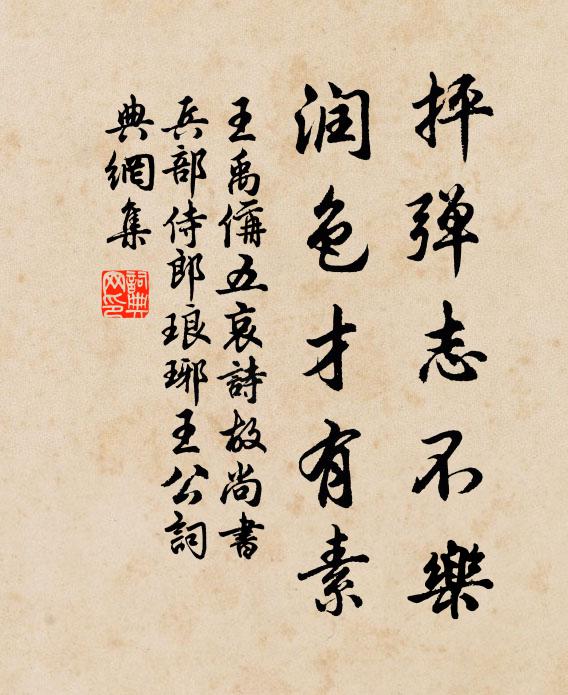 抨弹志不樂
润色才有素
王禹偁五哀詩故尚書
兵部侍郎琅琊王公詞
典網集
詞典
网印